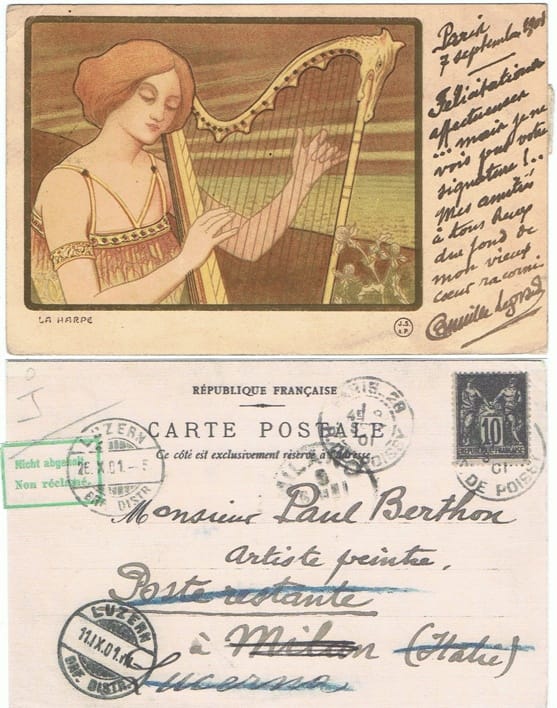 LA HARPE
J.S.
& P.
Paris
7 septembre 1901
Félicitations
affectueuses
... mais je ne
vois pas votre
signature!..
Mes amitiés
à tous deux
du fond de
mon vieux
cœur racorni
RÉPUBLIQUE FRANÇAISE
CARTE POSTALE
Ce côté est exclusivement réservé à l'adresse.
10
LUZERN
25.IX.01.-5
BRF. DISTR.
Nicht abgeholt
Non réclamé
PARIS
01
DE POISSY
Monsieur Paul Berthon
Artiste peintre,
Poste restante
à Milan (Italie)
Lucerna
LUZERN
11.IX.01
BRF. DISTR.